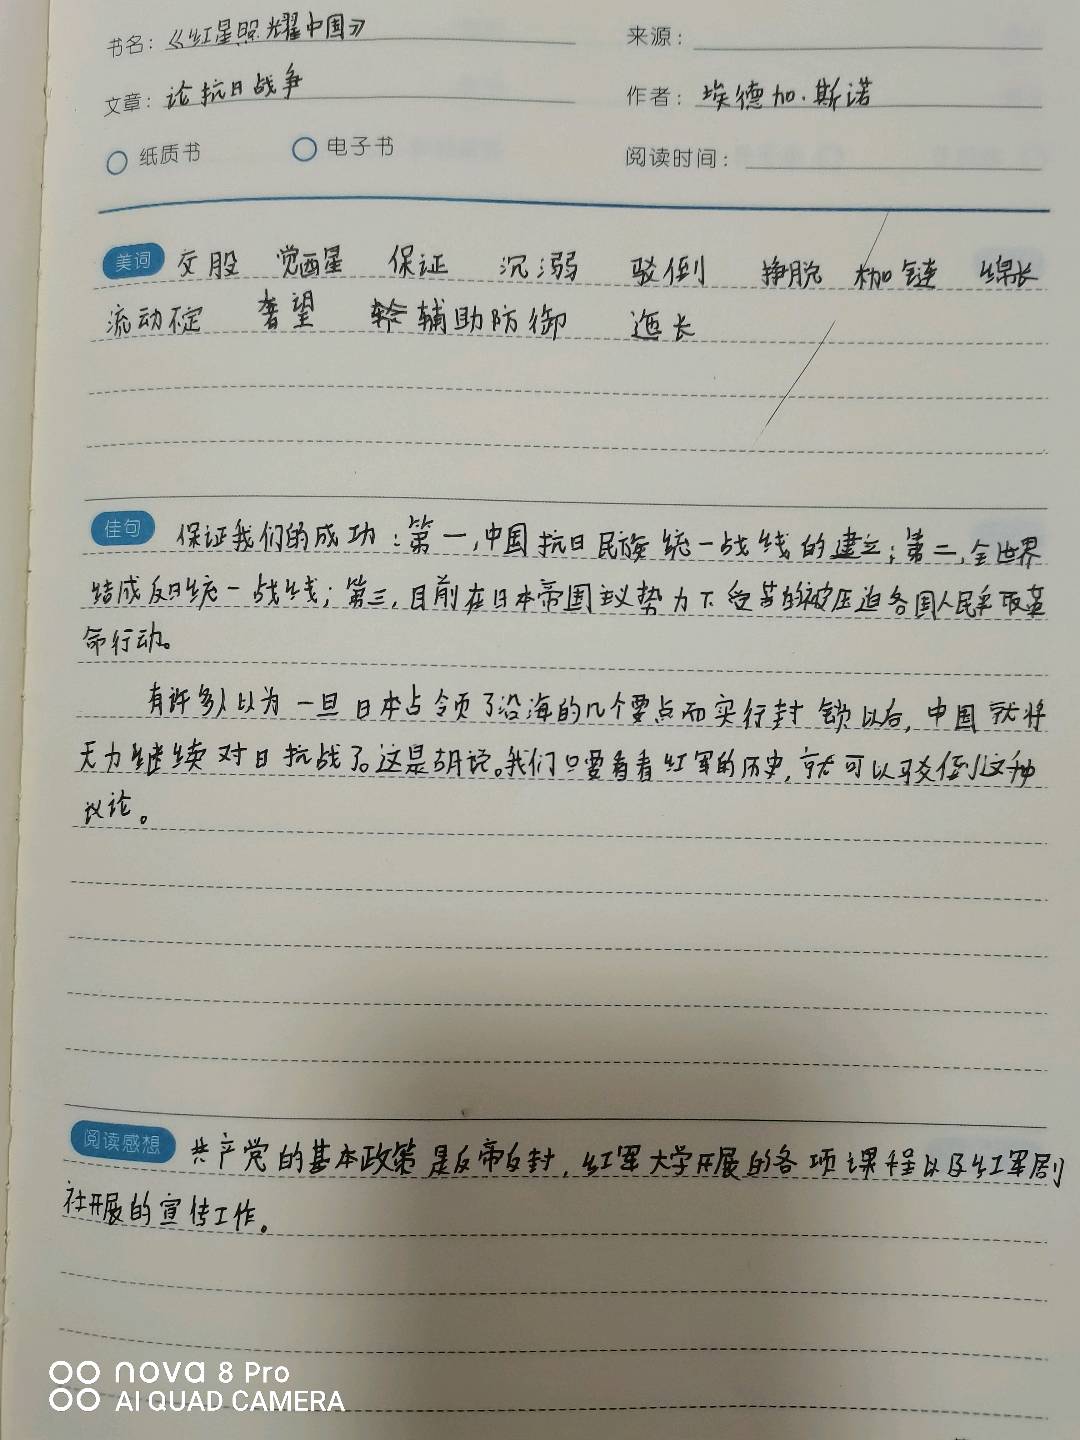 书名：《红星照耀中国》 来源：
文章：论抗日战争 作者：埃德加·斯诺
纸质书 电子书 阅读时间：
美词 交股 觉醒 保证 沉溺 驳倒 挣脱 枷链 绵长
流动不定 奢望 辅助防御 迤长
佳句 保证我们的成功：第一，中国抗日民族统一战线的建立；第二，全世界
结成反日统一战线；第三，目前在日本帝国主义势力下受苦的被压迫各国人民采取革
命行动。
有许多人以为一旦日本占领了沿海的几个要点而实行封锁以后，中国就将
无力继续对日抗战了。这是胡说。我们只要看看红军的历史，就可以驳倒这种
议论。
阅读感想 共产党的基本政策是反帝反封，红军大学开展的各项课程以及红军剧
社开展的宣传工作。
nova 8 Pro
AI QUAD CAMERA